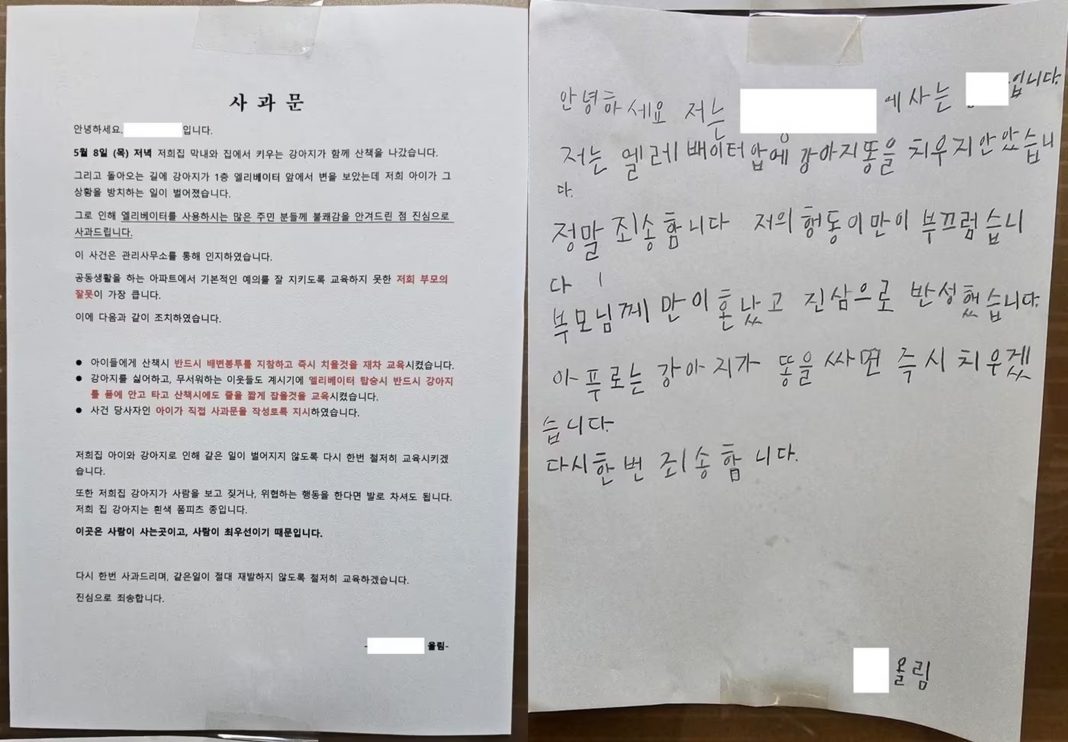 사과문
안녕하세요. 입니다.
5월 8일 (목) 저녁 저희집 막내와 집에서 키우는 강아지가 함께 산책을 나갔습니다.
그리고 돌아오는 길에 강아지가 1층 엘리베이터 앞에서 변을 보았는데 저희 아이가 그
상황을 방치하는 일이 벌어졌습니다.
그로 인해 엘리베이터를 사용하시는 많은 주민 분들께 불쾌감을 안겨드린 점 진심으로
사과드립니다.
이 사건은 관리사무소를 통해 인지하였습니다.
공동생활을 하는 아파트에서 기본적인 예의를 잘 지키도록 교육하지 못한 저희 부모의
잘못이 가장 큽니다.
이에 다음과 같이 조치하였습니다.
● 아이들에게 산책시 반드시 배변봉투를 지참하고 즉시 치울것을 재차 교육시켰습니다.
● 강아지를 싫어하고, 무서워하는 이웃들도 계시기에 엘리베이터 탑승시 반드시 강아지
를 품에 안고 타고 산책시에도 줄을 짧게 잡을것을 교육시켰습니다.
● 사건 당사자인 아이가 직접 사과문을 작성토록 지시하였습니다.
저희집 아이와 강아지로 인해 같은 일이 벌어지지 않도록 다시 한번 철저히 교육시키겠
습니다.
또한 저희집 강아지가 사람을 보고 짖거나, 위협하는 행동을 한다면 발로 차셔도 됩니다.
저희 집 강아지는 흰색 폼피츠 종입니다.
이곳은 사람이 사는곳이고, 사람이 최우선이기 때문입니다.
다시 한번 사과드리며, 같은일이 절대 재발하지 않도록 철저히 교육하겠습니다.
진심으로 죄송합니다.
- 올림-
안녕하세요 저는 에 사는 입니다.
저는 엘레베이터 압에 강아지똥을 치우지안았습니
다.
정말 죄송합니다 저의 행동이만이 부끄럽습니
다
부모님께 만이혼났고 진삼으로 반성했습니다.
아푸로는 강아지가 똥을 싸면 즉시 치우겠
습니다.
다시한번 죄송합니다.
올림